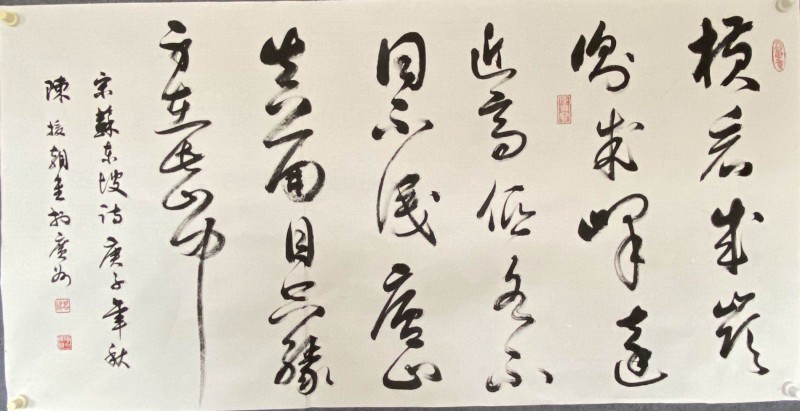 横看成嶺
側成峰遠
近高低各不
同不識廬山
真面目只緣
身在此山中
宋蘇東坡詩庚子年秋
陳援朝書於廣州